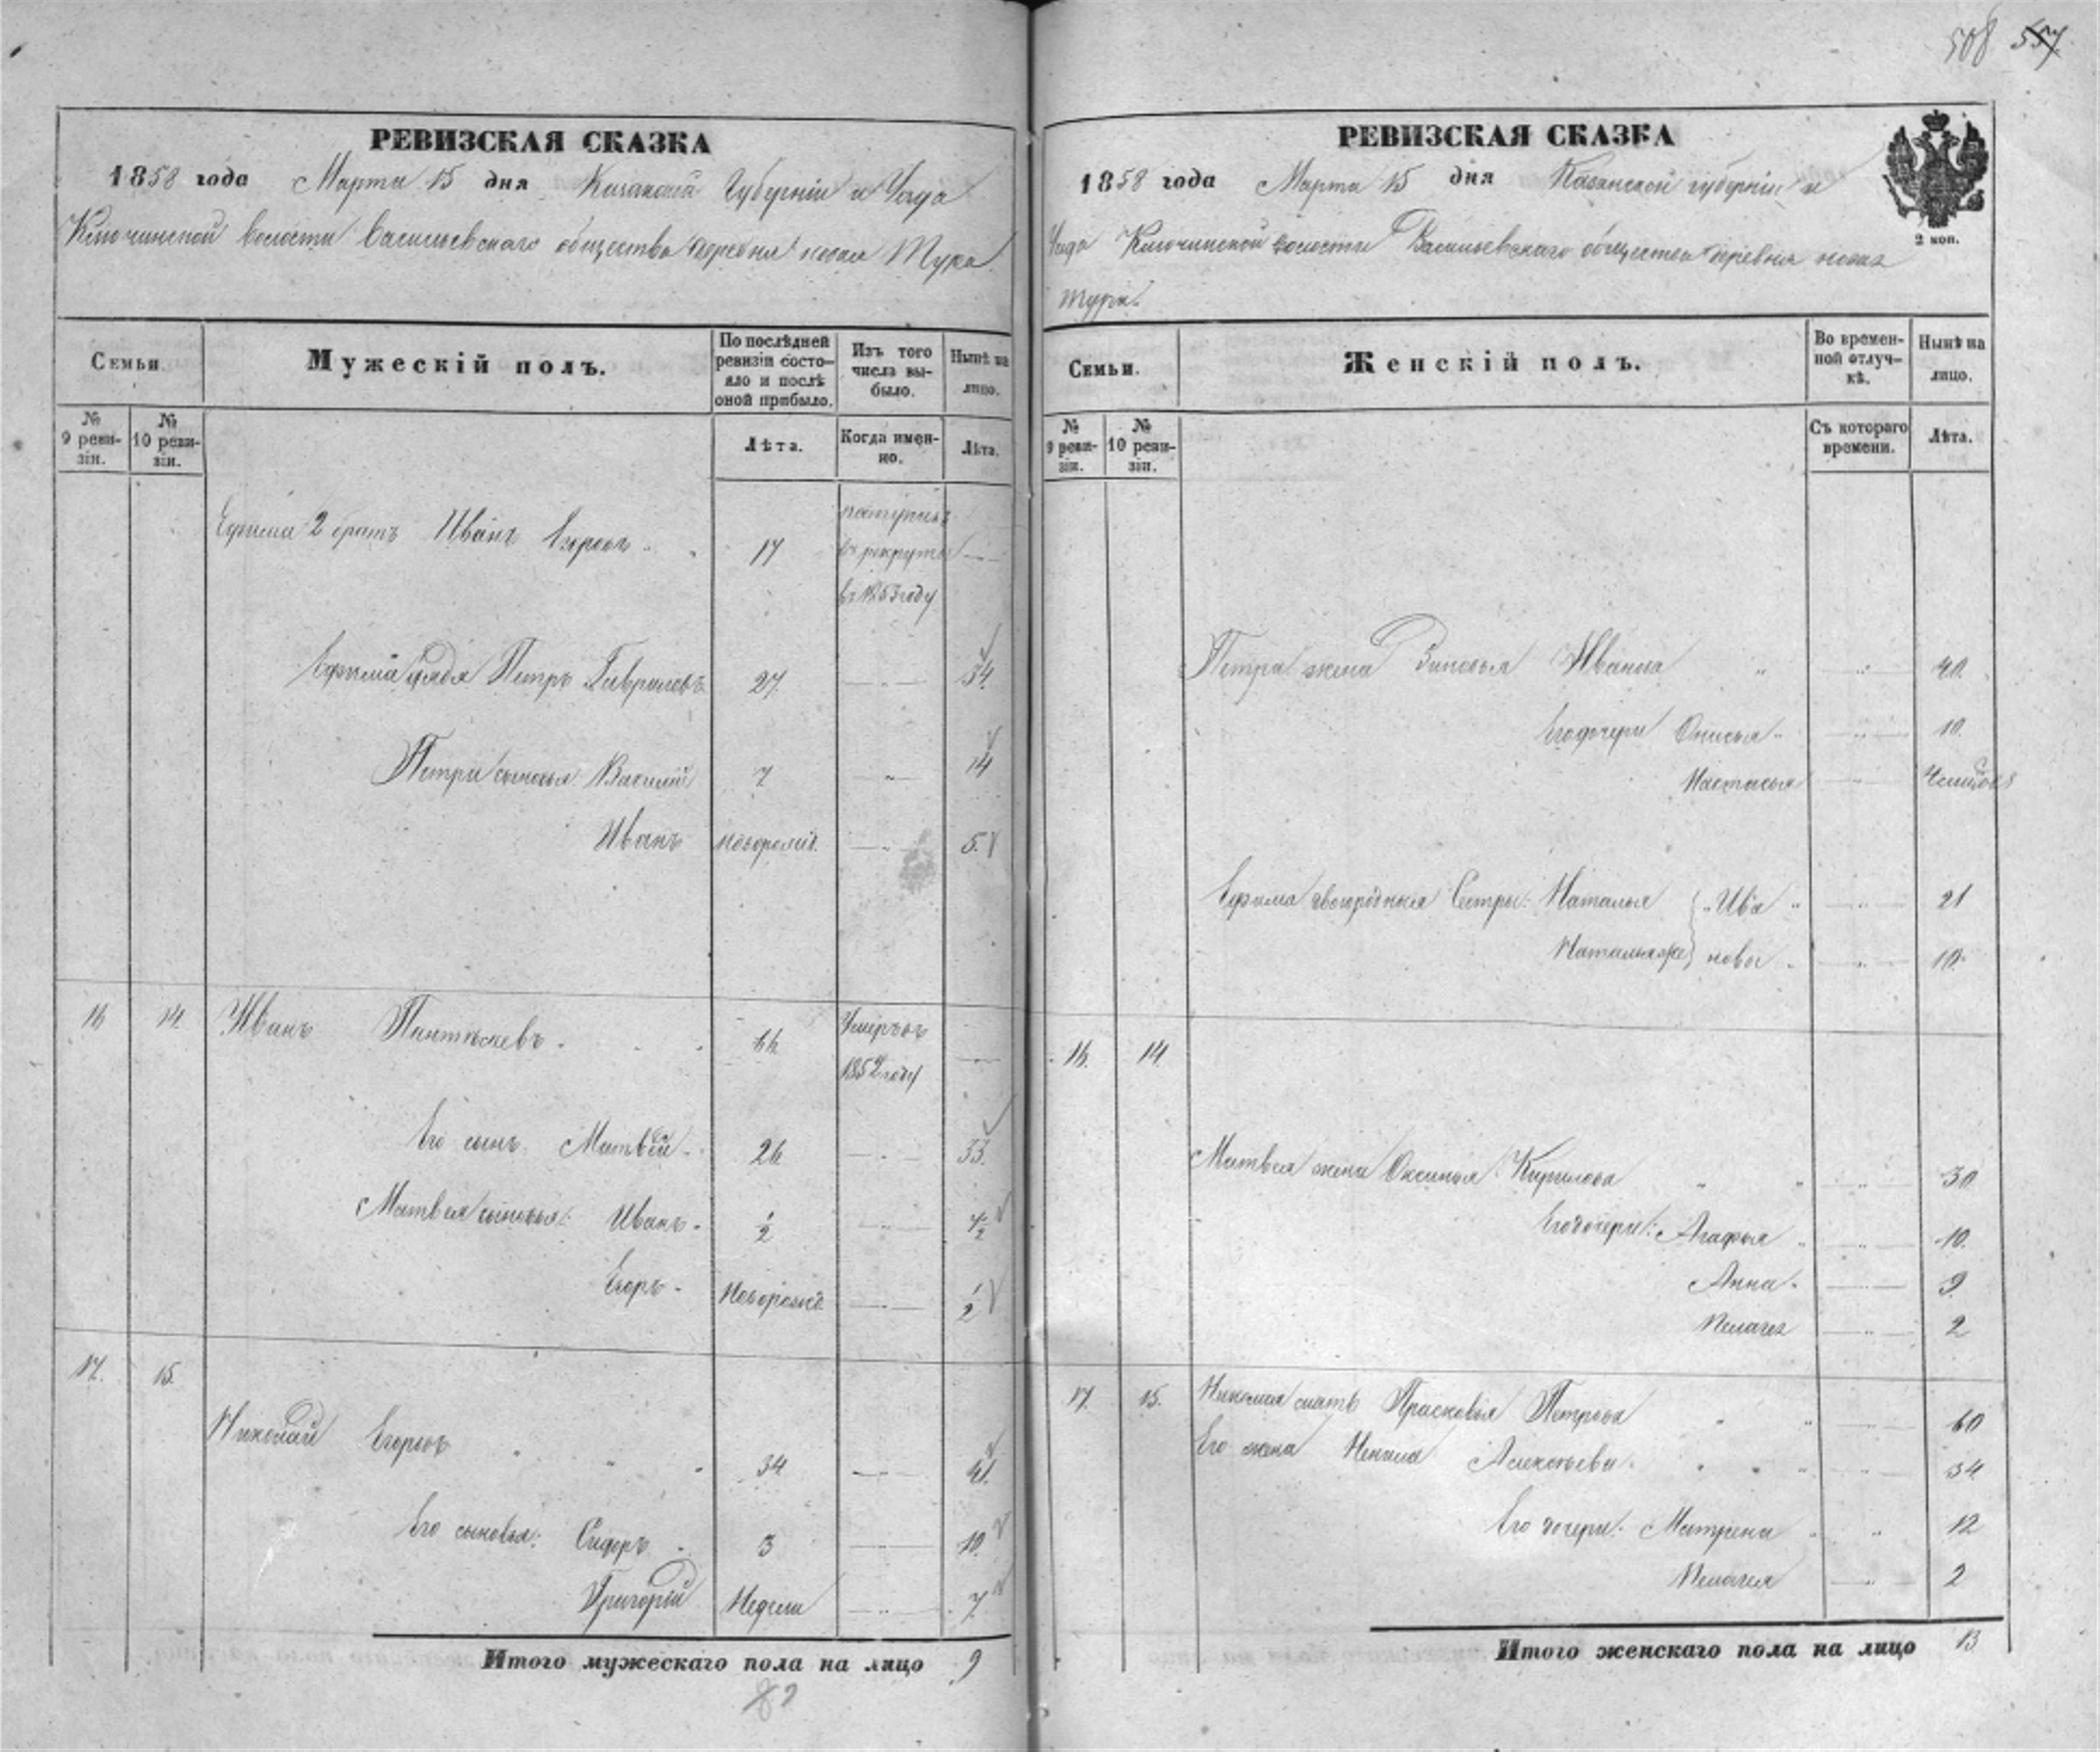 508 557
РЕВИЗСКАЯ СКАЗКА
1858 года Марта 15 дня Казанской Губерніи и Уезда
Ключинской волости Васильевскаго общества деревни новая Тура
Семьи. Мужескій полъ. По послѣдней ревизіи состояло и послѣ оной прибыло. Изъ того числа выбыло. Нынѣ на лицо.
№ 9 ревизіи. № 10 ревизіи. Лѣта. Когда именно. Лѣта.
Ефима 2 братъ Иванъ Егоровъ 17 поступилъ
въ рекруты
въ 1853 году
Ефима дядя Петръ Гавриловъ 27 34
Петра сыновья Василий 7 14
Иванъ новорожд. 5
16 14 Иванъ Пантелеевъ 66 Умеръ въ
1852 году
Его сынъ Матвѣй 26 33
Матвея сыновья: Иванъ 1/2 7 1/2
Егоръ Новорожд. 1/2
17. 15.
Николай Егоровъ 34 41
Его сыновья: Сидоръ 3 10
Григорий Недели 7
Итого мужескаго пола на лицо 9
РЕВИЗСКАЯ СКАЗКА
2 коп.
1858 года Марта 15 дня Казанской губерніи и
Уезда Ключинской волости Васильевскаго общества деревня новая
тура.
Семьи. Женскій полъ. Во временной отлучкѣ. Нынѣ на лицо.
№ 9 ревизіи. № 10 ревизіи. Съ котораго времени. Лѣта.
Петра жена Зиновья Иванова 40
Его дочери Онисья 10
Настасья
Ефима двоюродныя Сестры: Наталья Ива 21
Наталья же новы 10
16. 14
Матвея жена Оксинья Кирилова 30
Его дочери: Агафья 10
Анна 9
Пелагея 2
17. 15. Николая мать Прасковья Петрова 60
Его жена Ненила Алексѣева 34
Его дочери: Матрена 12
Пелагея 2
Итого женскаго пола на лицо 13